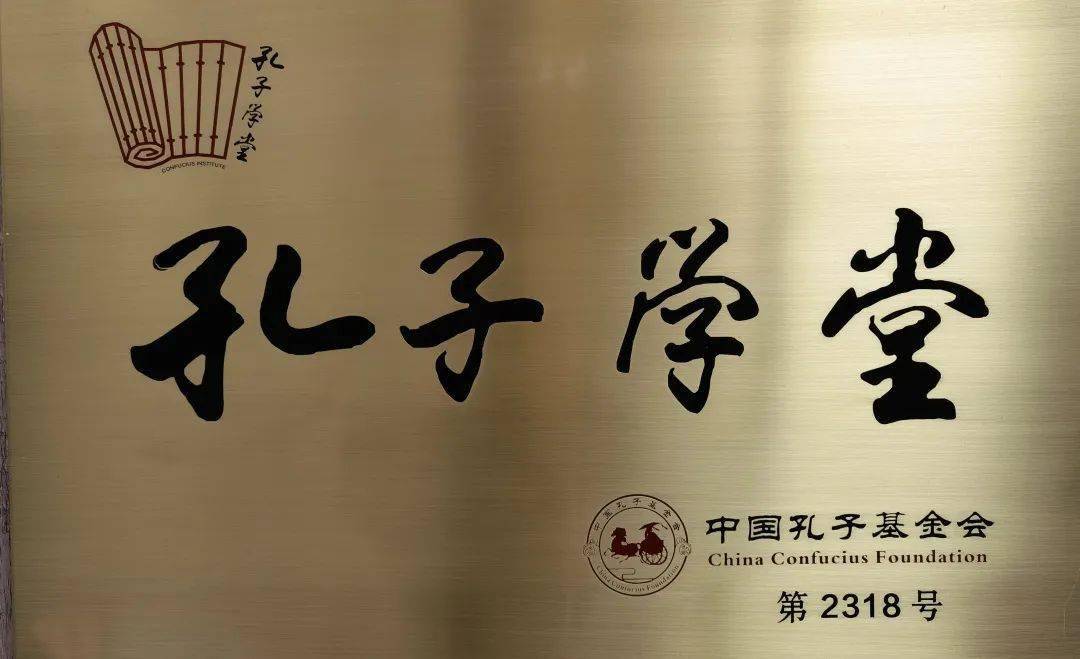 孔子学堂
CONFUCIUS INSTITUTE
孔子学堂
中国孔子基金会
China Confucius Foundation
中国孔子基金会
China Confucius Foundation
第 2318 号